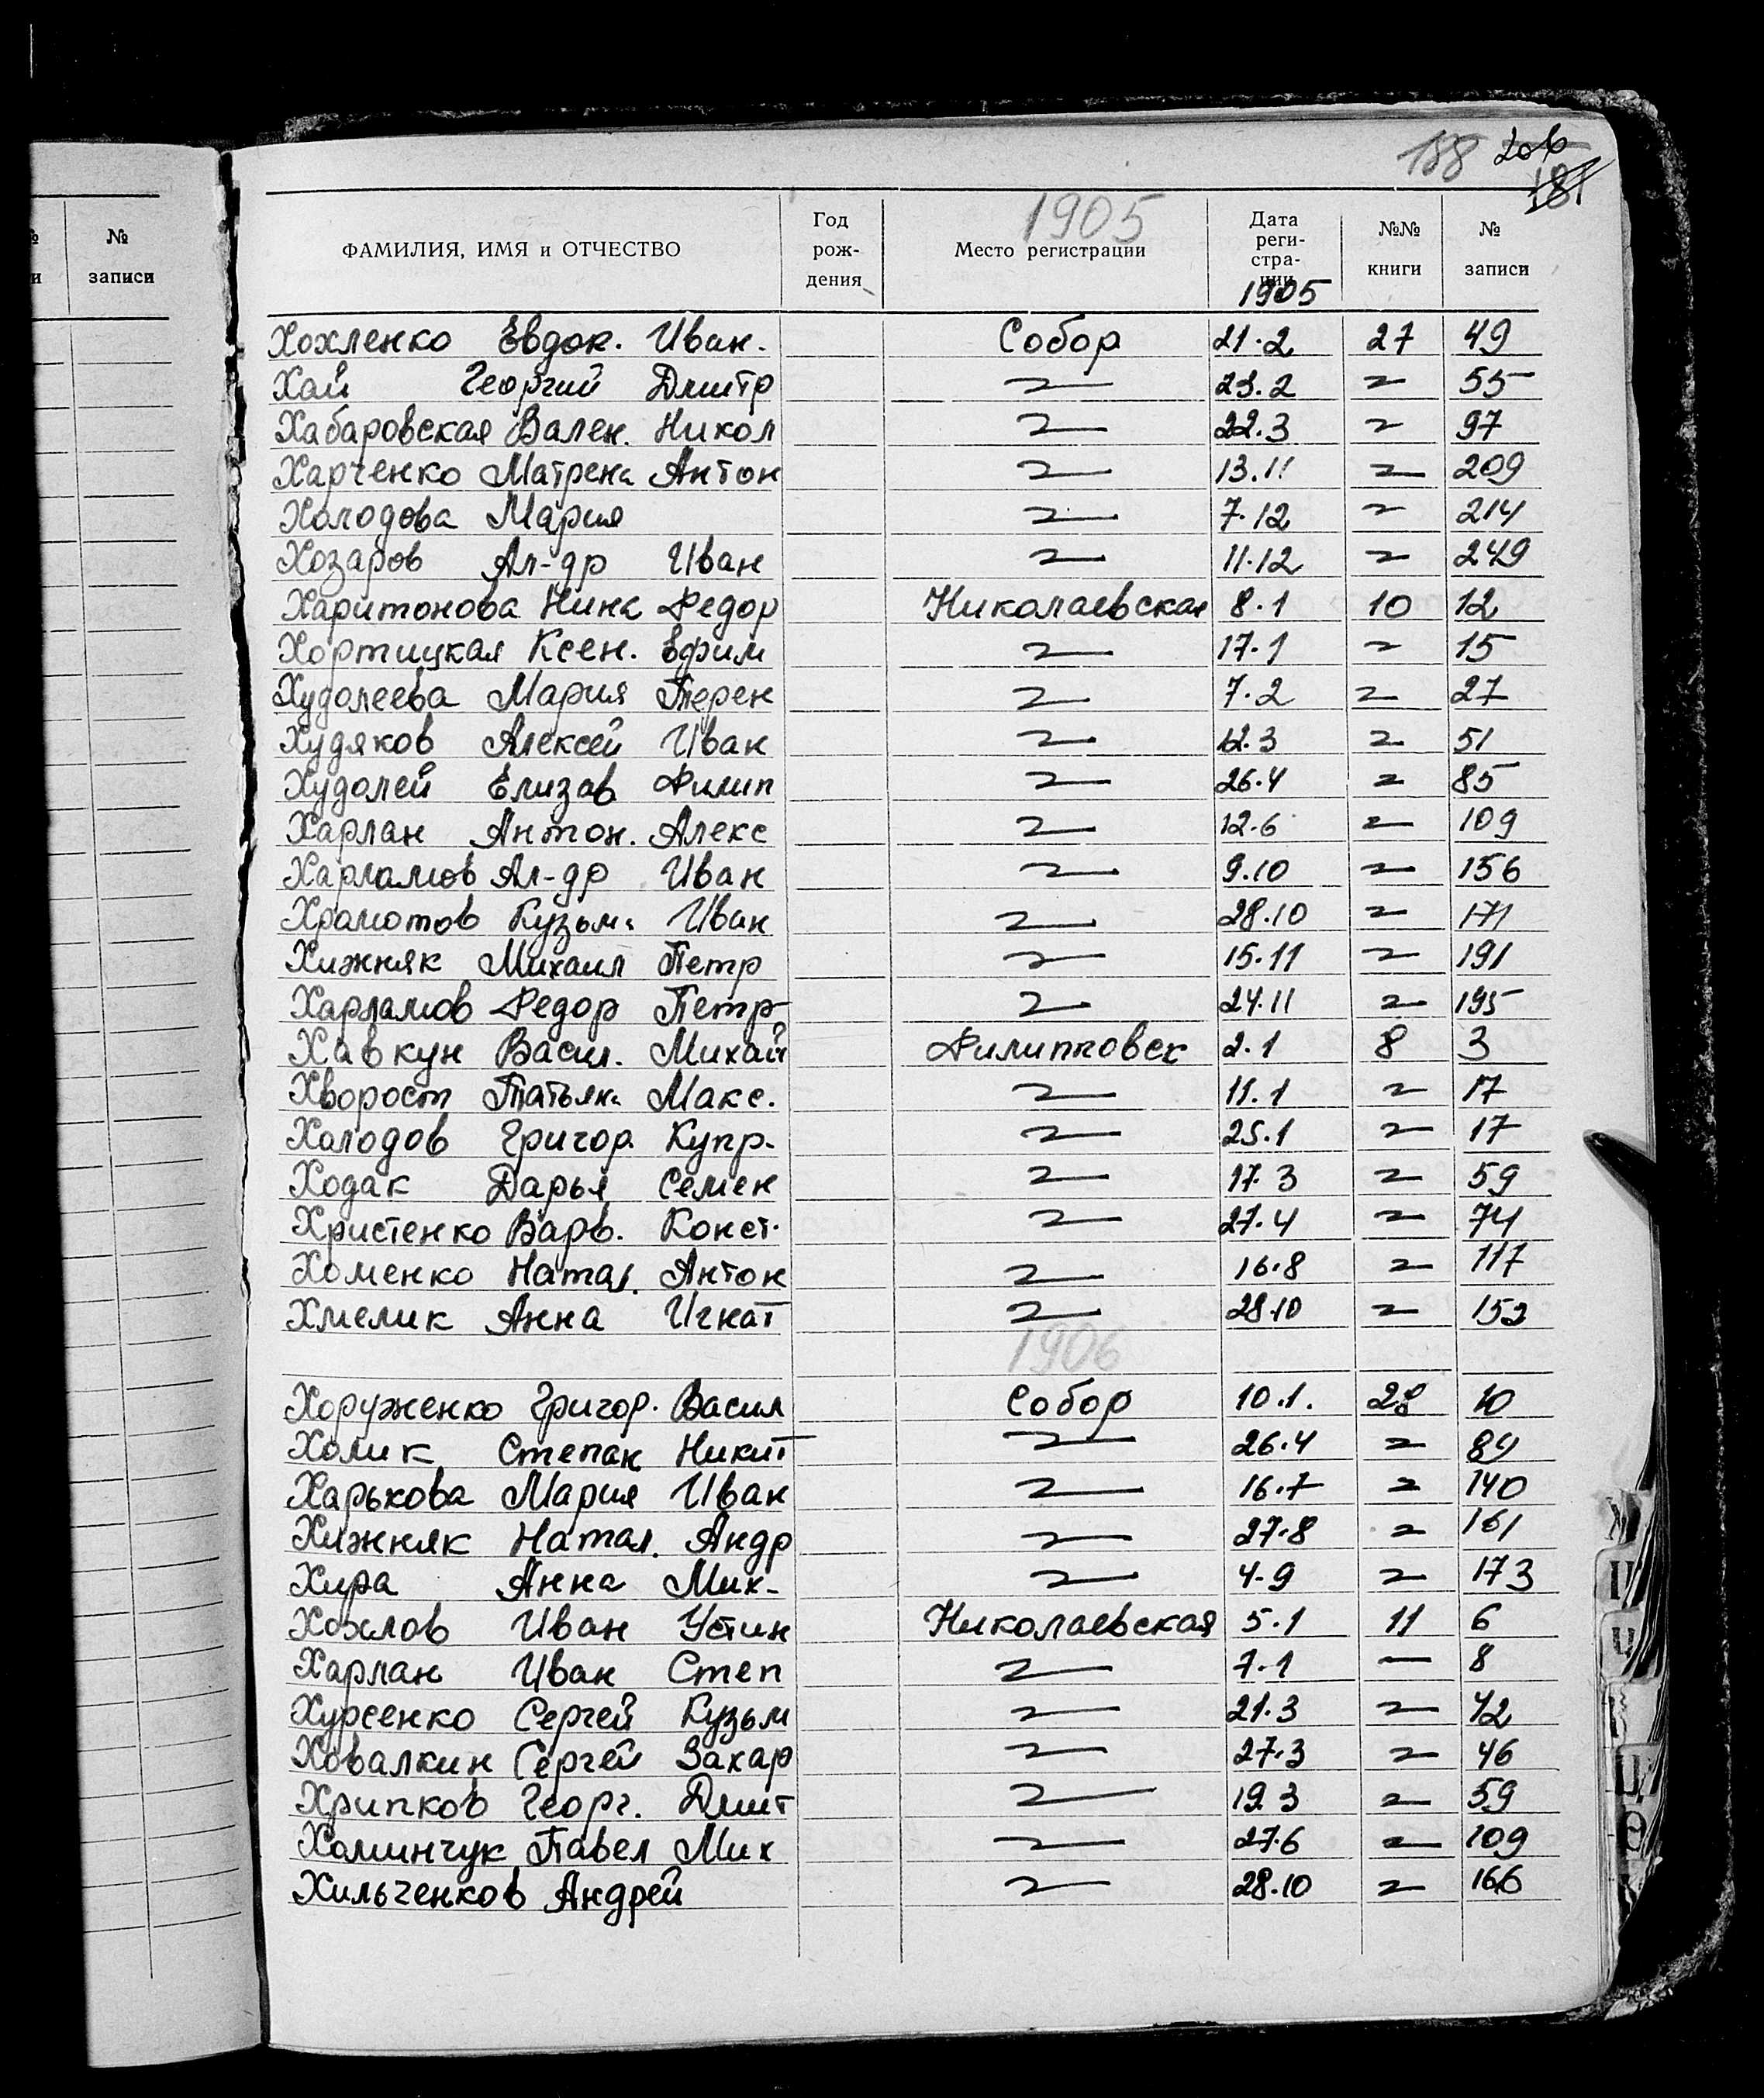 188 206
181
№
записи
1905
ФАМИЛИЯ, ИМЯ и ОТЧЕСТВО Год рож- дения Место регистрации Дата реги- стра- ции 1905 №№ книги № записи
Хохленко Евдок. Иван. Собор 21.2 27 49
Хай Георгий Дмитр 〃 23.2 〃 55
Хабаровская Вален. Никол 〃 22.3 〃 97
Харченко Матрена Антон 〃 13.11 〃 209
Холодова Мария 〃 7.12 〃 214
Хозаров Ал-др Иван 〃 11.12 〃 249
Харитонова Нина Федор Николаевская 8.1 10 12
Хортицкая Ксен. Ефим 〃 17.1 〃 15
Худолеева Мария Терен 〃 7.2 〃 27
Худяков Алексей Иван 〃 12.3 〃 51
Худолей Елизав Филип 〃 26.4 〃 85
Харлан Антон. Алекс 〃 12.6 〃 109
Харламов Ал-др Иван 〃 9.10 〃 156
Храмотов Кузьма Иван 〃 28.10 〃 171
Хижняк Михаил Петр 〃 15.11 〃 191
Харламов Федор Петр 〃 24.11 〃 195
Хавкун Васил. Михай Филипповск 2.1 8 3
Хворост Татьяна Макс. 〃 11.1 〃 17
Холодов Григор Купр. 〃 25.1 〃 17
Ходак Дарья Семен 〃 17.3 〃 59
Христенко Варв. Конст. 〃 27.4 〃 74
Хоменко Натал. Антон 〃 16.8 〃 117
Хмелик Анна Игнат 〃 28.10 〃 152
1906
Хоруженко Григор. Васил Собор 10.1. 28 10
Холик Степан Никит 〃 26.4 〃 84
Харькова Мария Иван 〃 16.7 〃 140
Хижняк Натал. Андр 〃 27.8 〃 161
Хира Анна Мих- 〃 4.9 〃 173
Хохлов Иван Устин Николаевская 5.1 11 6
Харлан Иван Степ 〃 7.1 — 8
Хурсенко Сергей Кузьм 〃 21.3 〃 42
Ховалкин Сергей Захар 〃 27.3 〃 46
Хрипков Георг. Дмит 〃 19.3 〃 59
Хоминчук Павел Мих 〃 27.6 〃 109
Хильченков Андрей 〃 28.10 〃 166